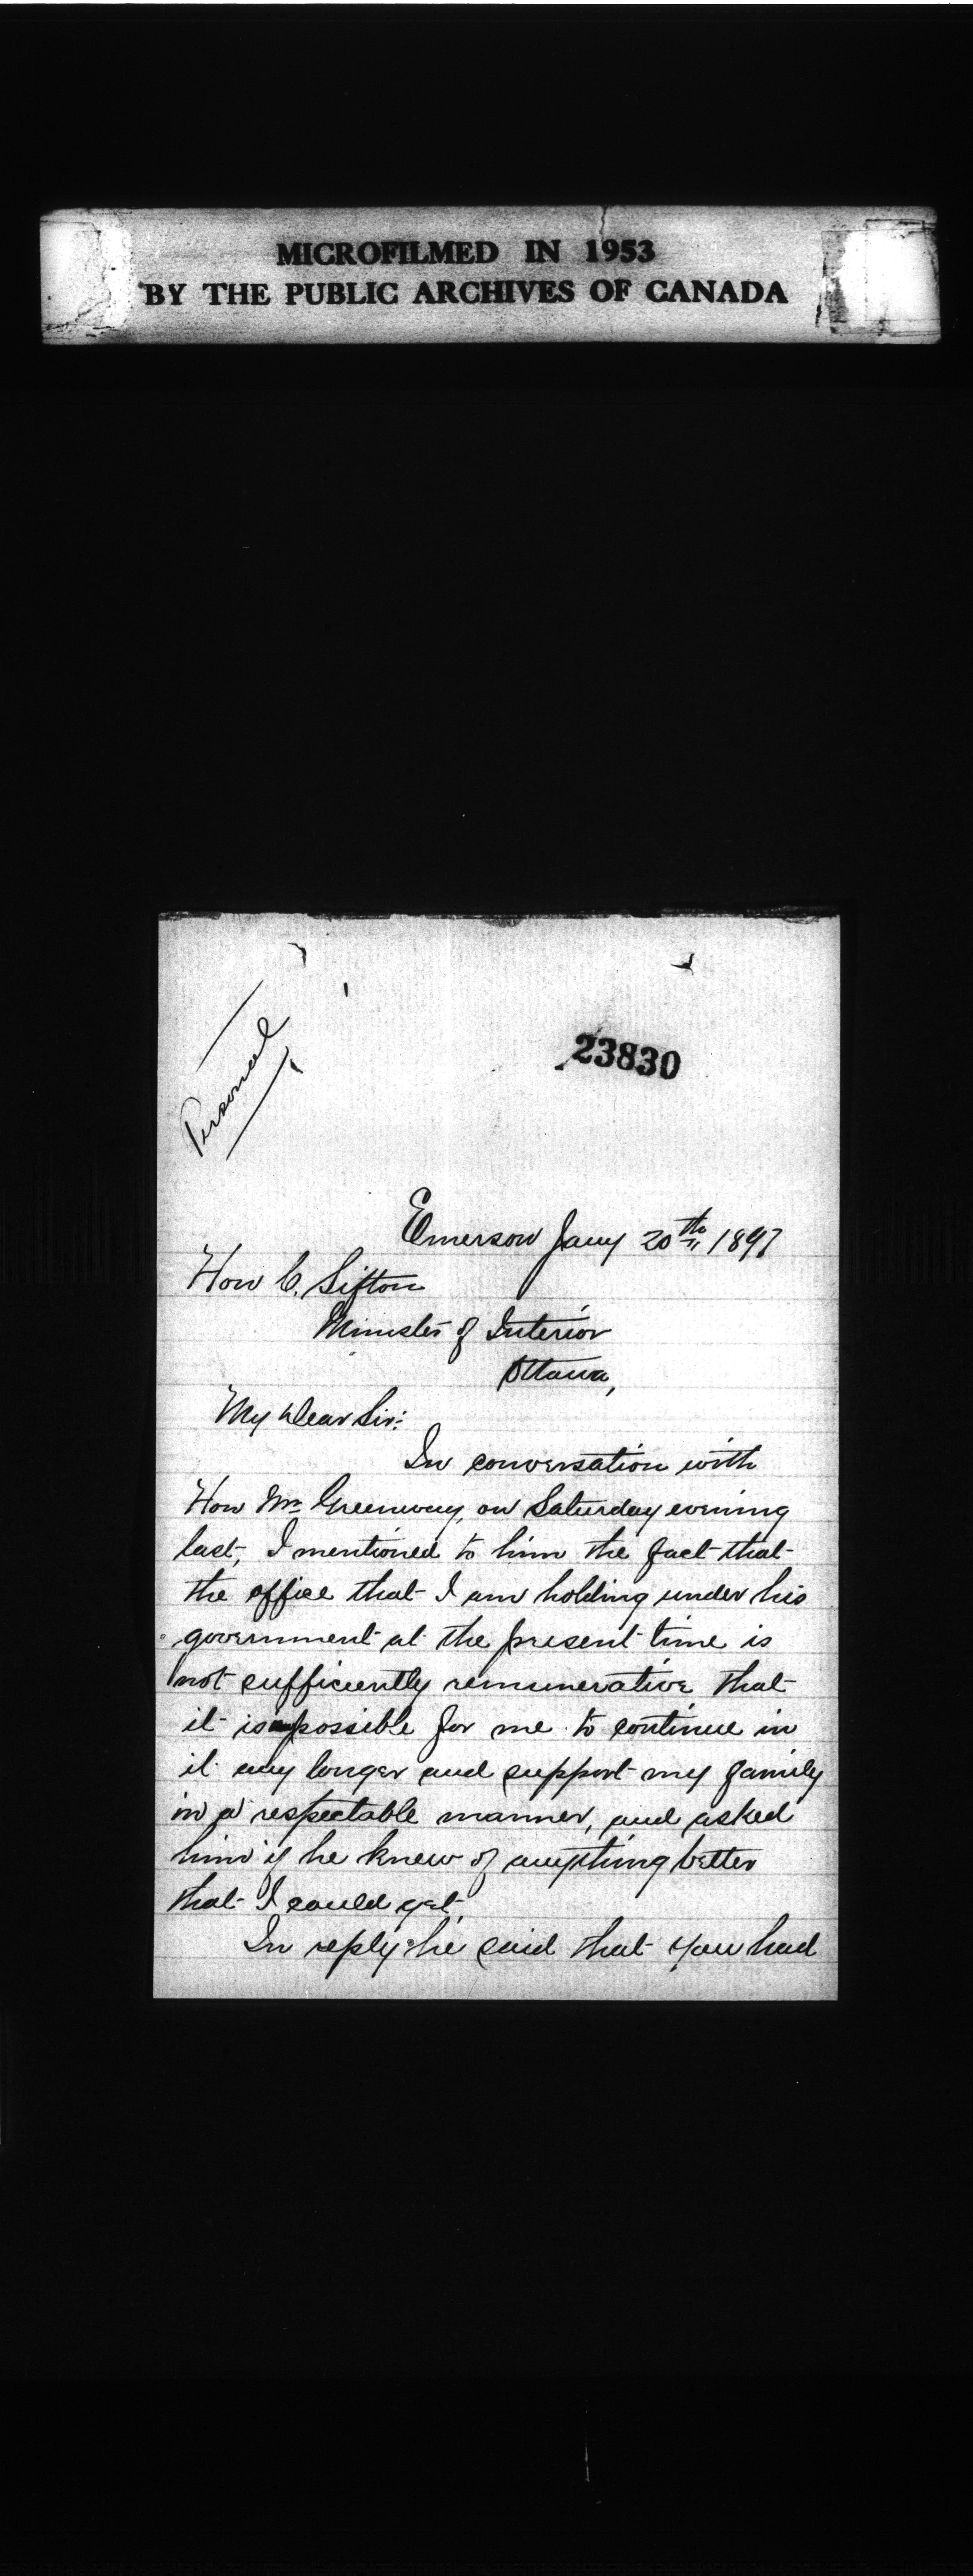 MICROFILMED IN 1953
BY THE PUBLIC ARCHIVES OF CANADA
Personal
23830
Emerson Jany 20th 1897
Hon C. Sifton
Minister of Interior
Ottawa,
My Dear Sir:
In conversation with
Hon Mr Greenway, on Saturday evening
last, I mentioned to him the fact that
the office that I am holding under his
government at the present time is
not sufficiently remunerative that
it is possible for me to continue in
it any longer and support my family
in a respectable manner, and asked
him if he knew of anything better
that I could get.
In reply he said that you had